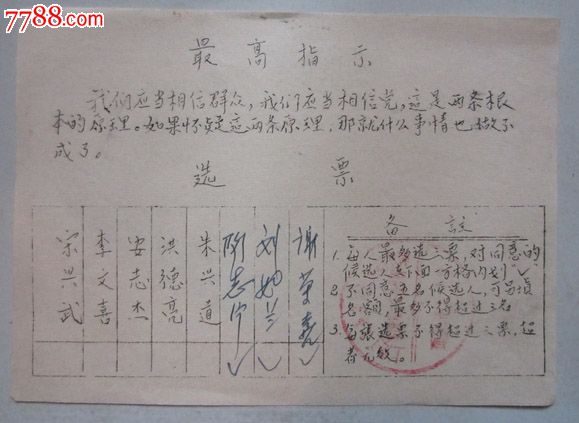 7788.com
最高指示
我们应当相信群众，我们应当相信党，这是两条根
本的原理。如果怀疑这两条原理，那就什么事情也做不
成了。
选票
宋兴武
李文喜
安志杰
洪德亮
朱兴道
刘
谢
备註
1. 每人最多选三票，对同意的
候选人下面方格内划"√"
2. 不同意五名候选人，可另填
名额，最多不得超过三名
3. 每張选票不得超过三票，起
者无效。